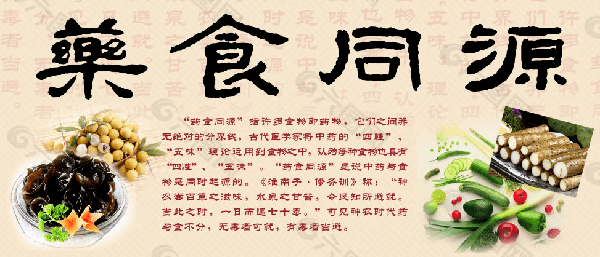 藥食同源
“药食同源”指许多食物即药物，它们之间并
无绝对的分界线，古代医学家将中药的“四性”、
“五味”理论运用到食物之中，认为每种食物也具有
“四性”、“五味”。“药食同源”是说中药与食
物是同时起源的。《淮南子·修务训》称：“神
农尝百草之滋味，水泉之甘苦，令民知所避就。
当此之时，一日而遇七十毒。”可见神农时代药
与食不分，无毒者可就，有毒者当避。